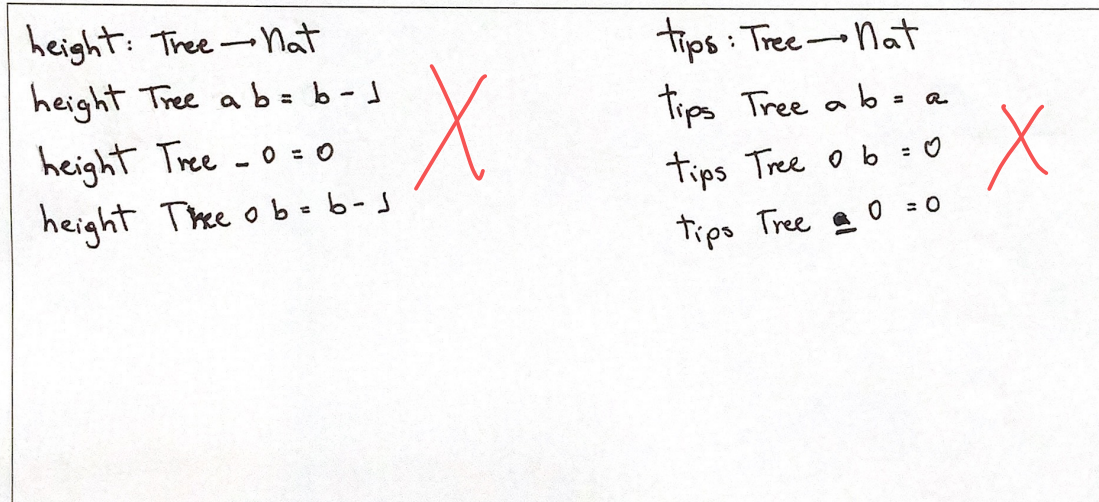 height: Tree → Nat
height Tree a b = b - 1
height Tree _ 0 = 0
height Tree 0 b = b - 1
tips : Tree → Nat
tips Tree a b = a
tips Tree 0 b = 0
tips Tree _ 0 = 0